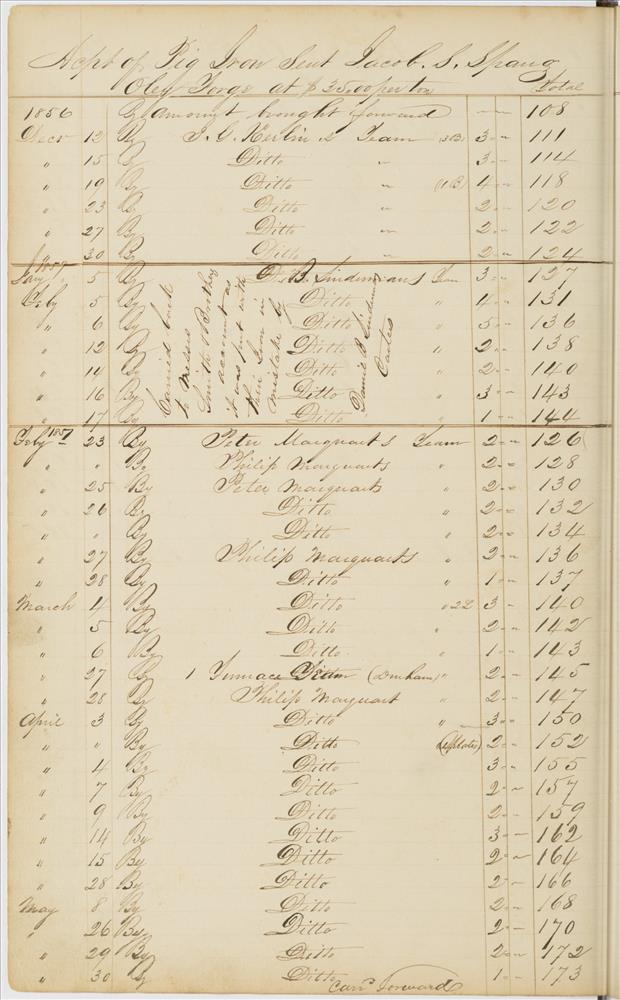 Acpt of Pig Iron Sent Jacob. S. Spang
Oley Forge at $35.00 per ton
Total
1856 By amount brought forward " " 108
Decr 12 By J. G. Kerlin s Team (3B) 3 " " 111
" 15 By Ditto " 3 " " 114
" 19 By Ditto " (1B) 4 " " 118
" 23 By Ditto " 2 " " 120
" 27 By Ditto " 2 " " 122
" 30 By Ditto " 2 " " 124
1857
Jany 5 By B. Lindermans Team 3 " " 127
Feby 5 By Ditto " 4 " " 131
" 6 By Ditto " 5 " " 136
" 12 By Ditto " 2 " " 138
" 14 By Ditto " 2 " " 140
" 16 By Ditto " 3 " " 143
" 17 By Ditto " 1 " " 144
Carried back
to Messrs
Smith & Brothers
account as
it was put with
their Iron in
mistake by
Daniel B Linderman
Carters
Feby 1857 23 By Peter Marquarts Team 2 " " 126
" " By Philip Marquarts " 2 " " 128
" 25 By Peter Marquarts " 2 " " 130
" 26 By Ditto " 2 " " 132
" " By Ditto " 2 " " 134
" 27 By Philip Marquarts " 2 " " 136
" 28 By Ditto " 1 " " 137
March 4 By Ditto " 2L 3 " 140
" 5 By Ditto " 2 " " 142
" 6 By Ditto " 1 " " 143
" 27 By 1 Furnace Team (Dunham) " 2 " " 145
" 28 By Philip Marquart " 2 " " 147
April 3 By Ditto " 3 " " 150
" " By Ditto 2 " " 152
" 4 By Ditto 3 " " 155
" 7 By Ditto 2 " " 157
" 9 By Ditto 2 " 159
" 14 By Ditto 3 " " 162
" 15 By Ditto 2 " " 164
" 28 By Ditto 2 " " 166
May 8 By Ditto 2 " " 168
" 26 By Ditto 2 " " 170
" 29 By Ditto 2 " " 172
" 30 By Ditto 1 " " 173
Carrd Forward